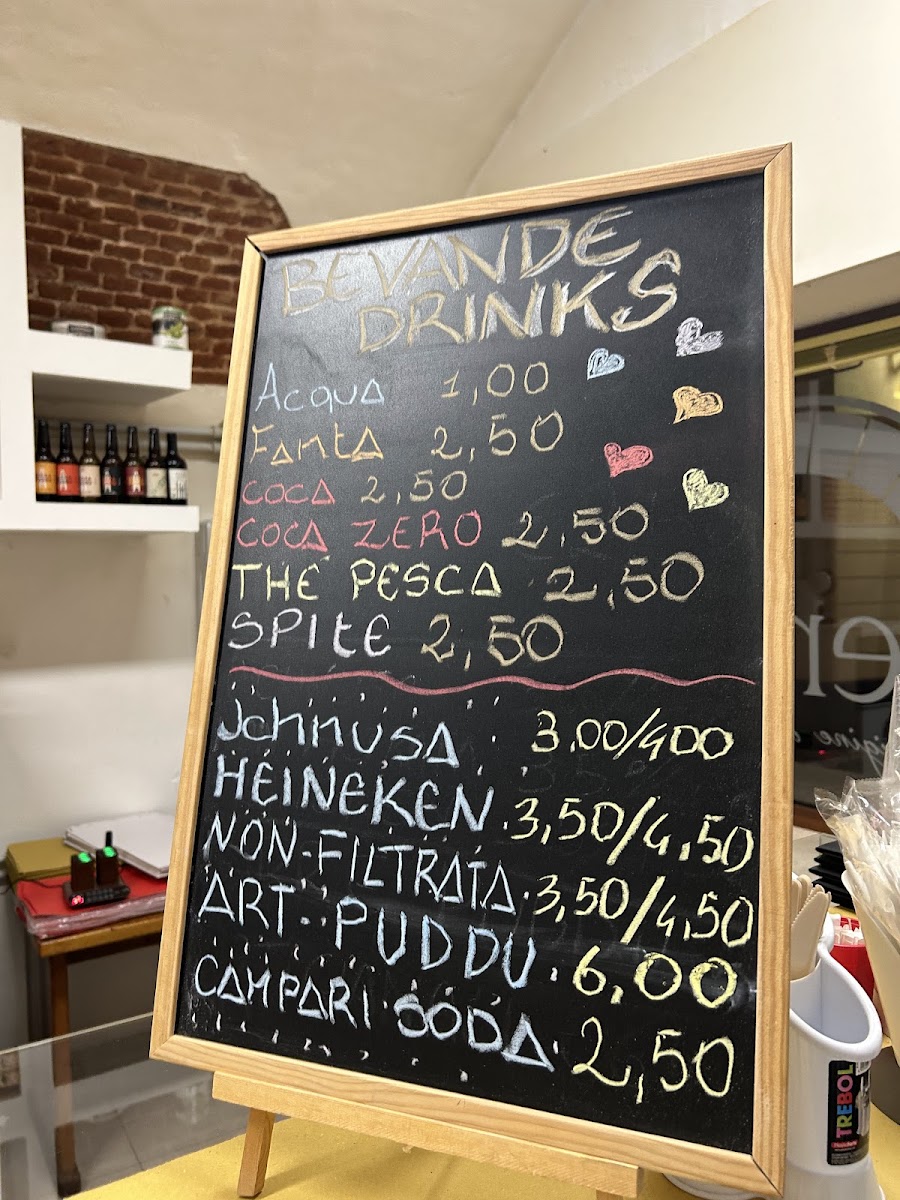 BEVANDE
DRINKS
Acqua 1,00
Fanta 2,50
COCA 2,50
COCA ZERO 2,50
THE PESCA 2,50
SPItE 2,50
Ichnusa 3,00/400
HEINEKEN 3,50/4,50
NON-FILTRATA 3,50/4,50
ART. PUDDU 6,00
CAMPARI SODA 2,50
TREBOL